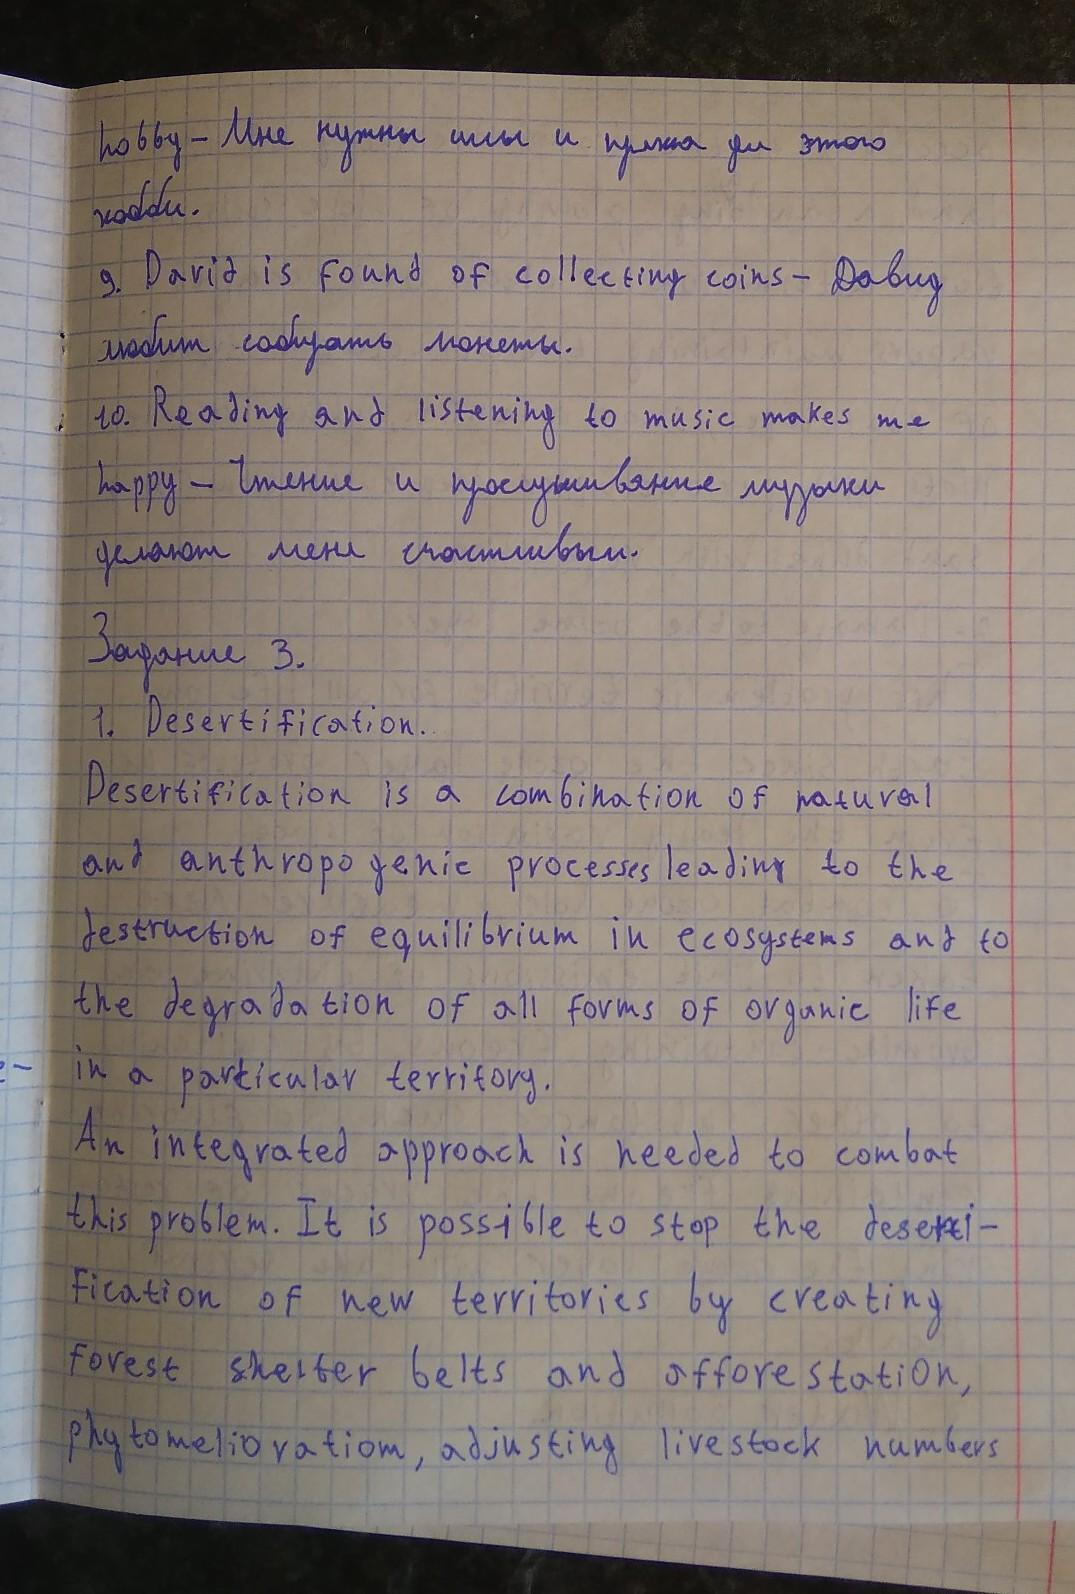 hobby – Мне нужны иглы и пряжа для этого
хобби.
9. David is found of collecting coins – Давид
любит собирать монеты.
10. Reading and listening to music makes me
happy – Чтение и прослушивание музыки
делают меня счастливым.
Задание 3.
1. Desertification.
Desertification is a combination of natural
and anthropogenic processes leading to the
destruction of equilibrium in ecosystems and to
the degradation of all forms of organic life
in a particular territory.
An integrated approach is needed to combat
this problem. It is possible to stop the deserti-
fication of new territories by creating
forest shelter belts and afforestation,
phytomelioration, adjusting livestock numbers